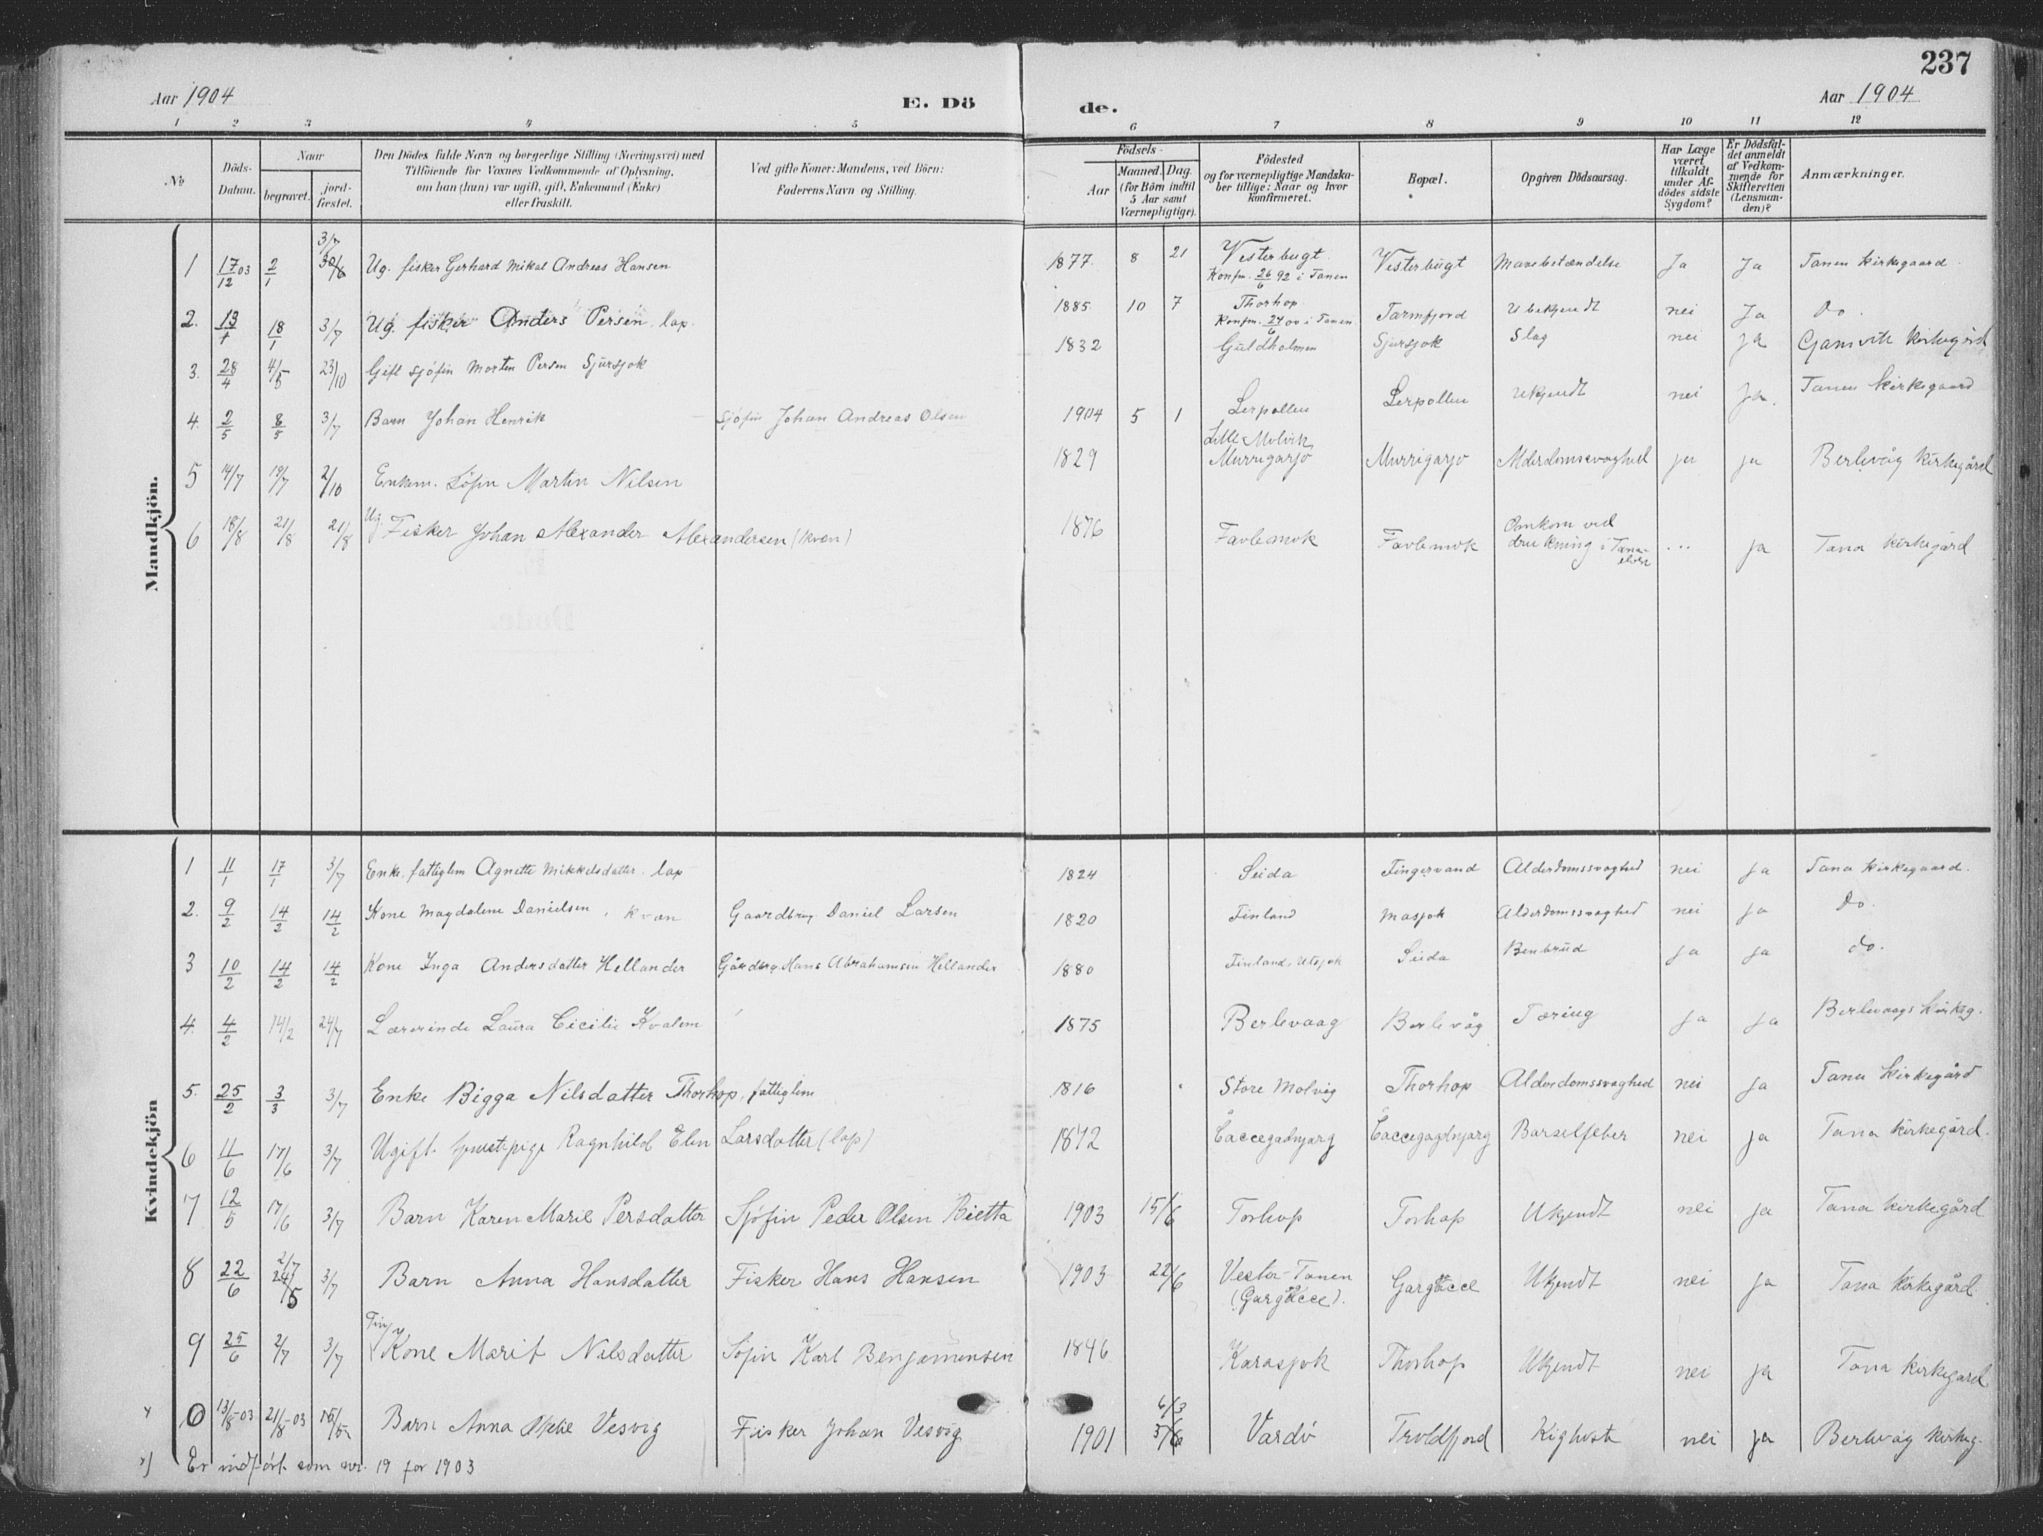 237
Aar 1904 E. Dö de. Aar 1904
1 2 3 4 5 6 7 8 9 10 11 12
No Döds-Datum. Naar begravet. jordfæstet. Den Dödes fulde Navn og borgerlige Stilling (Næringsvei) med Tilföiende for Voxnes Vedkommende af Oplysning, om han (hun) var ugift, gift, Enkemand (Enke) eller fraskilt. Ved gifte Koner: Mandens, ved Börn: Faderens Navn og Stilling. Födsels- Aar Maaned. Dag. (for Börn indtil 5 Aar samt Værnepligtige). Födested og for værnepligtige Mandskaber tillige: Naar og hvor konfirmeret. Bopæl. Opgiven Dödsaarsag. Har Læge været tilkaldt under Afdödes sidste Sygdom? Er Dödsfaldet anmeldt af Vedkommende for Skifteretten (Lensmanden)? Anmærkninger.
Mandkjön.
1 17/12 03 2/1 3/7 30/6 Ug. fisker Gerhard Mikal Andreas Hansen 1877 8 21 Vesterbugt Konfm. 26/6 92 i Tanen Vesterbugt Mavebetændelse Ja Ja Tanen Kirkegaard.
2. 13/1 18/1 3/7 Ug. fisker Anders Persen. lap. 1885 10 7 Thorhop Konfm. 24/6 00 i Tanen Tarmfjord Ubekjendt nei Ja Do.
3. 28/4 4/5 23/10 Gift sjöfin Morten Persen Sjursjok 1832 Guldholmen Sjursjok Slag nei ja Gamvik Kirkegård
4. 2/5 8/5 3/7 Barn Johan Henrik Sjöfin Johan Andreas Olsen 1904 5 1 Lerpollen Lerpollen Ukjendt nei Ja. Tanen Kirkegaard
5 14/7 19/7 2/10 Enkem. Söfin Martin Nilsen 1829 Lille Molvik Murrigarjo Murrigarjo Alderdomssvaghed ja ja Berlevåg Kirkegård
6 18/8 21/8 21/8 Ug. Fisker Johan Alexander Alexandersen (kvæn) 1876 Favlemok Favlemok Omkom ved drukning i Tanaelven ... ja Tana Kirkegård
Kvindekjön
1 11/1 17/1 3/7 Enke. fattiglem Agnette Mikkelsdatter. lap 1824 Seida Fingervand Alderdomssvaghed nei ja Tana Kirkegaard.
2. 9/2 14/2 14/2 Kone Magdalene Danielsen, kvæn Gaardbrug Daniel Larsen 1820 Finland Masjok Alderdomssvaghed nei ja Do.
3 10/2 14/2 14/2 Kone Inga Andersdatter Hellander Gårdbrg. Hans Abrahamsen Hellander 1880 Finland, Utsjok Seida Benbrud ja ja do.
4. 4/2 14/2 24/7 Lærerinde Laura Cicilie Kvalem 1875 Berlevaag Berlevåg Tæring ja ja Berlevaags Kirkeg.
5. 25/2 3/3 3/7 Enke Bigga Nilsdatter Thorhop, fattiglem 1816 Store Molvig Thorhop Alderdomssvaghed nei ja Tana Kirkegård
6 11/6 17/6 3/7 Ugift tjenestpige Ragnhild Elen Larsdatter (lap) 1872 Čaccegadnjarg Čaccegagdnjarg Barselfeber nei ja Tana Kirkegård.
7 12/5 17/6 3/7 Barn Karen Marie Persdatter Sjöfin Peder Olsen Bietta 1903 15/6 Torhop Torhop Ukjendt nei ja Tana Kirkegård
8 22/6 2/7 24/5 3/7 Barn Anna Hansdatter Fisker Hans Hansen 1903 22/6 Vester-Tanen (Gargocce). Gargocce Ukjendt nei ja Tana Kirkegård
9 25/6 2/7 3/7 Fin Kone Marit Nilsdatter Söfin Karl Benjamensen 1846 Karasjok Thorhop Ukjendt nei ja Tana Kirkegård
x 0 13/8-03 21/8-03 Barn Anna Vesvig Fisker Johan Vesvig 1901 6/3 Vardö Troldfjord Kighoste nei ja Berlevåg Kirkeg.
x) Er indfört som nr. 19 for 1903